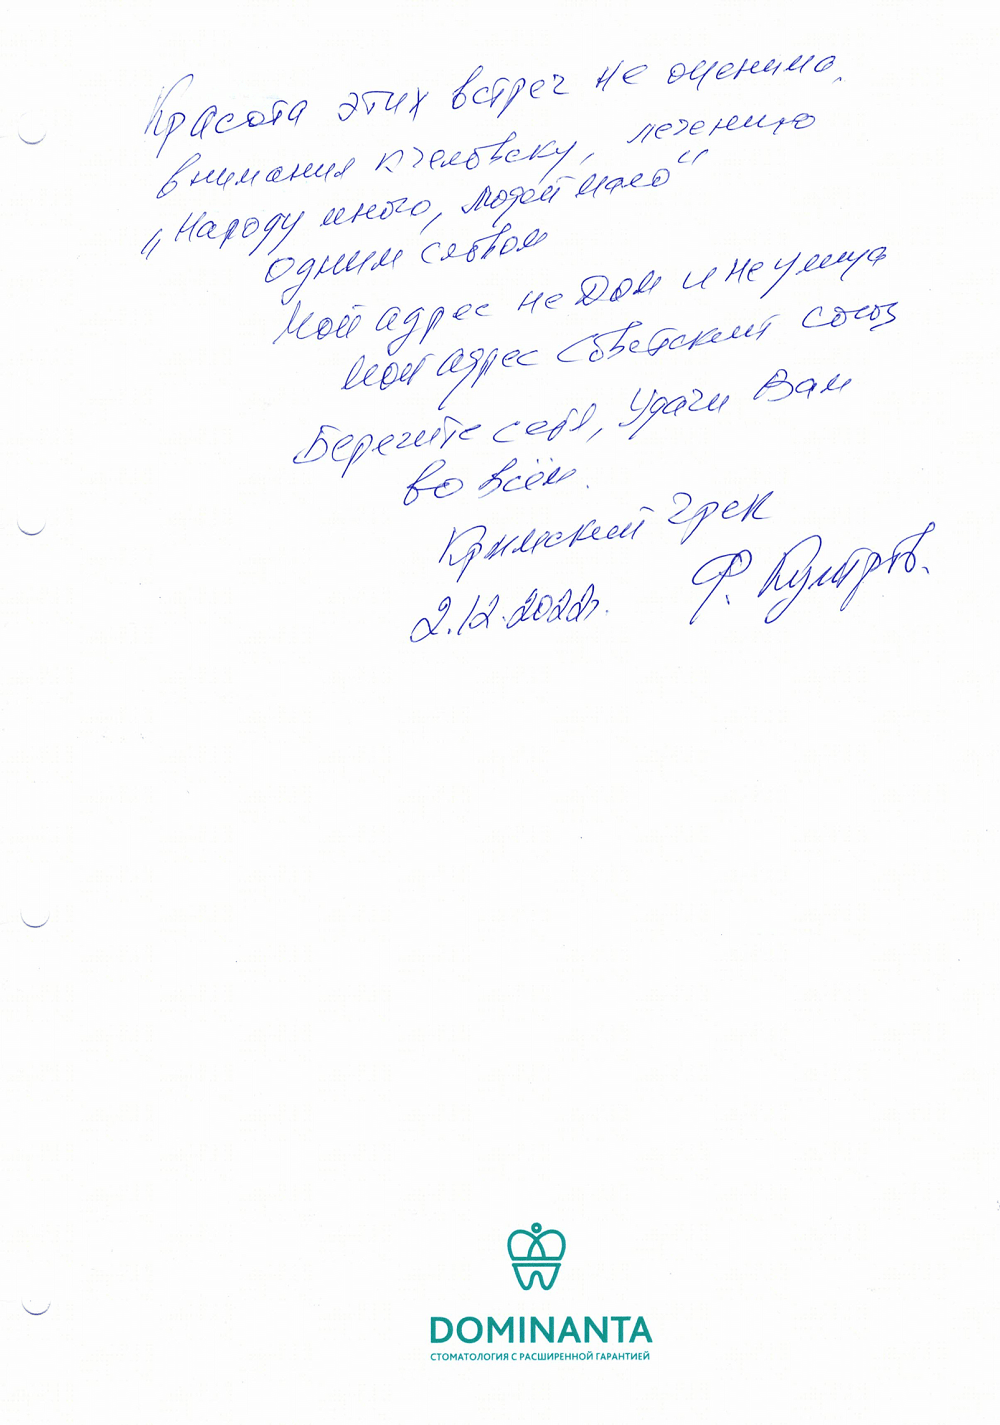 Красота этих встреч не оценима.
внимания к человеку, лечению
„Народу много, людей мало“
одним словом
Мой адрес не Дом и не улица
мой адрес Советский союз
Берегите себя, Удачи Вам
во всём.
Крымский Грек
2.12.2022г. Ф.
DOMINANTA
СТОМАТОЛОГИЯ С РАСШИРЕННОЙ ГАРАНТИЕЙ